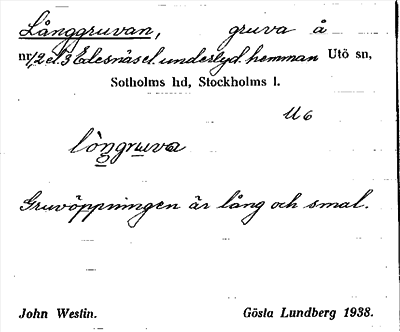 Långgruvan, gruva å
nr 1, 2 el. 3 Edesnäs el. underlyd. hemman Utö sn,
Sotholms hd, Stockholms l.
U6
lòngruva
Gruvöppningen är lång och smal.
John Westin. Gösta Lundberg 1938.